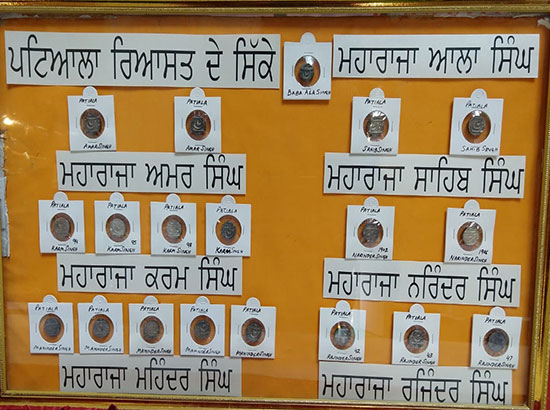 ਪਟਿਆਲਾ ਰਿਆਸਤ ਦੇ ਸਿੱਕੇ
BABA ALA SINGH
ਮਹਾਰਾਜਾ ਆਲਾ ਸਿੰਘ
PATIALA
AMAR SINGH
PATIALA
AMAR SINGH
ਮਹਾਰਾਜਾ ਅਮਰ ਸਿੰਘ
PATIALA
SAHIB SINGH
PATIALA
SAHIB SINGH
ਮਹਾਰਾਜਾ ਸਾਹਿਬ ਸਿੰਘ
PATIALA
94
KARM SINGH
PATIALA
95
KARM SINGH
PATIALA
98
KARM SINGH
PATIALA
KARM SINGH
ਮਹਾਰਾਜਾ ਕਰਮ ਸਿੰਘ
PATIALA
1902
NARINDER SINGH
PATIALA
NARINDER SINGH
ਮਹਾਰਾਜਾ ਨਰਿੰਦਰ ਸਿੰਘ
PATIALA
MAHINDER SINGH
PATIALA
MAHINDER SINGH
PATIALA
MAHINDER SINGH
PATIALA
MAHINDER SINGH
PATIALA
MAHINDER SINGH
ਮਹਾਰਾਜਾ ਮਹਿੰਦਰ ਸਿੰਘ
PATIALA
42
RAJINDER SINGH
PATIALA
43
RAJINDER SINGH
PATIALA
47
RAJINDER SINGH
ਮਹਾਰਾਜਾ ਰਜਿੰਦਰ ਸਿੰਘ